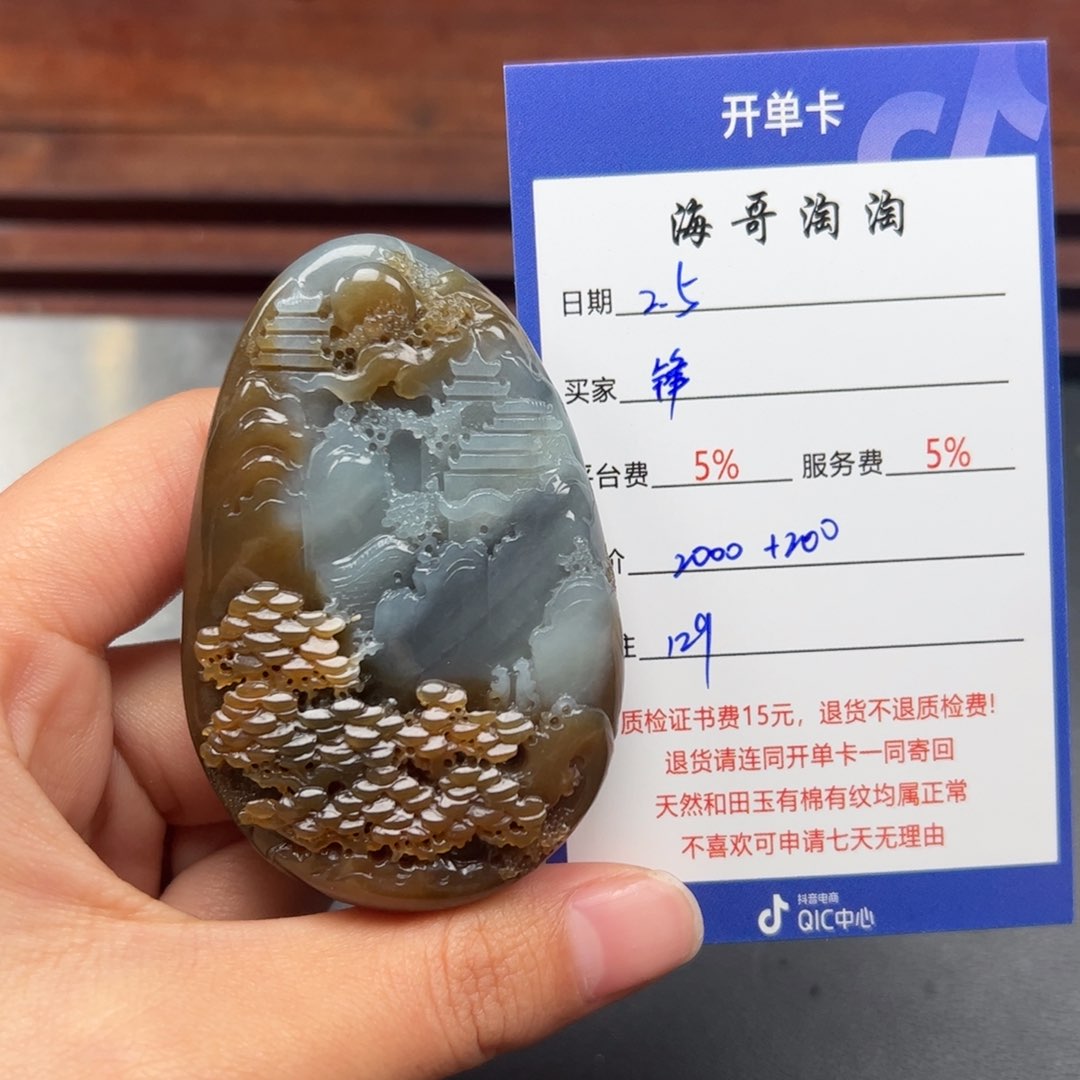 开单卡
海哥淘淘
日期 2.5
买家 锋
平台费 5% 服务费 5%
价 2000 +200
注 129
质检证书费15元，退货不退质检费!
退货请连同开单卡一同寄回
天然和田玉有棉有纹均属正常
不喜欢可申请七天无理由
抖音电商
QIC中心